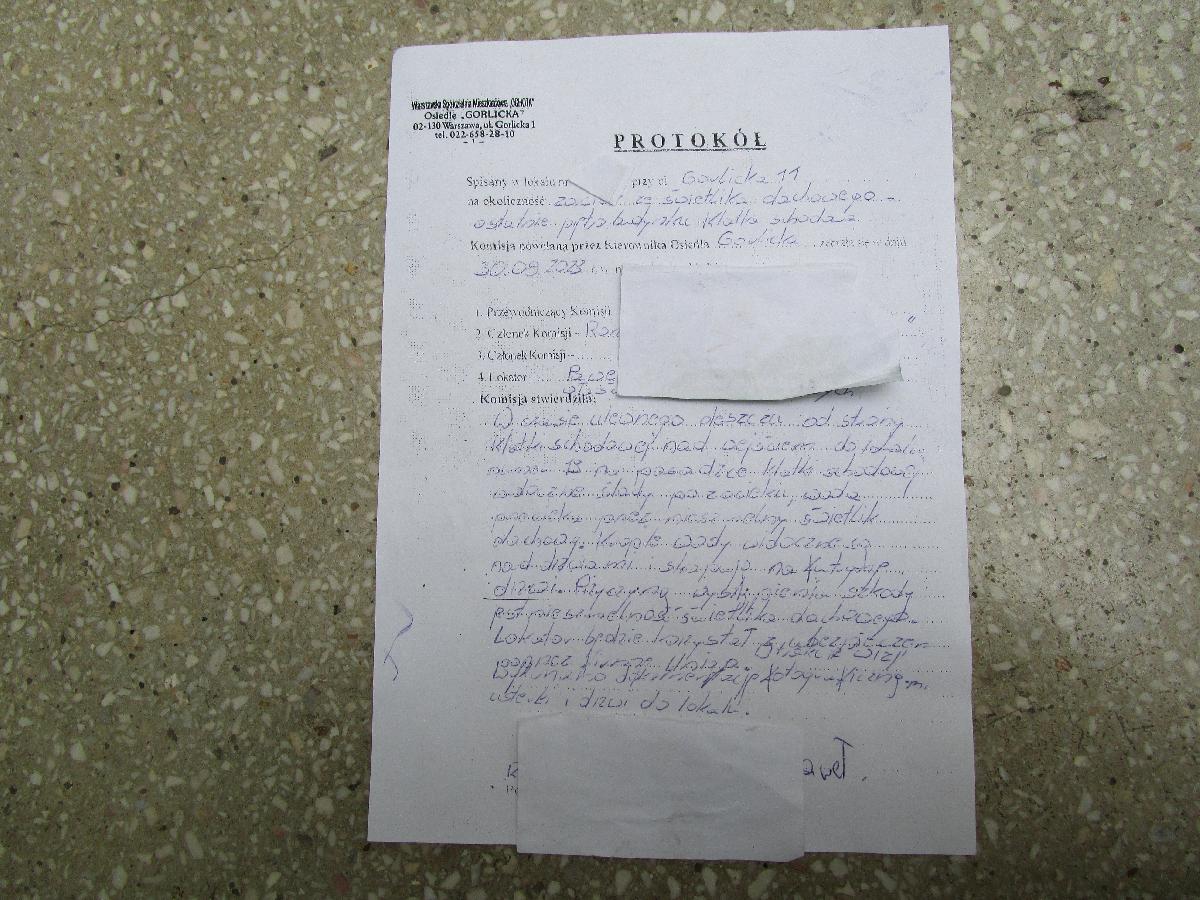 Warszawska Spółdzielnia Mieszkaniowa „OCHOTA"
Osiedle „GORLICKA"
02-130 Warszawa, ul. Gorlicka 1
tel. 022-658-28-10
- 1 -
PROTOKÓŁ
Spisany w lokalu nr przy ul Gorlicka 11
na okoliczność ze świetlika dachowego -
ostatnie piętro budynku klatka schodowa
Komisja powołana przez Kierownika Osiedla Gorlicka w dniu
30.09.2023
1. Przewodniczący Komisji
2. Członek Komisji -
3. Członek Komisji -
4. Lokator
Komisja stwierdziła:
W czasie ulewnego deszczu od strony
klatki schodowej nad wejściem do lokalu
numer 13 na posadzce klatki schodowej
widoczne ślady po zacieku, woda
przez nieszczelny świetlik
dachowy. Krople wody widoczne są
nad drzwiami na futrynę
drzwi. Przyczyną wystąpienia szkody
jest nieszczelność świetlika dachowego.
Lokator będzie korzystał z ubezpieczen
poprzez firmę
Wykonano dokumentację fotograficzną m.
usterki i drzwi do lokalu.
aweł.